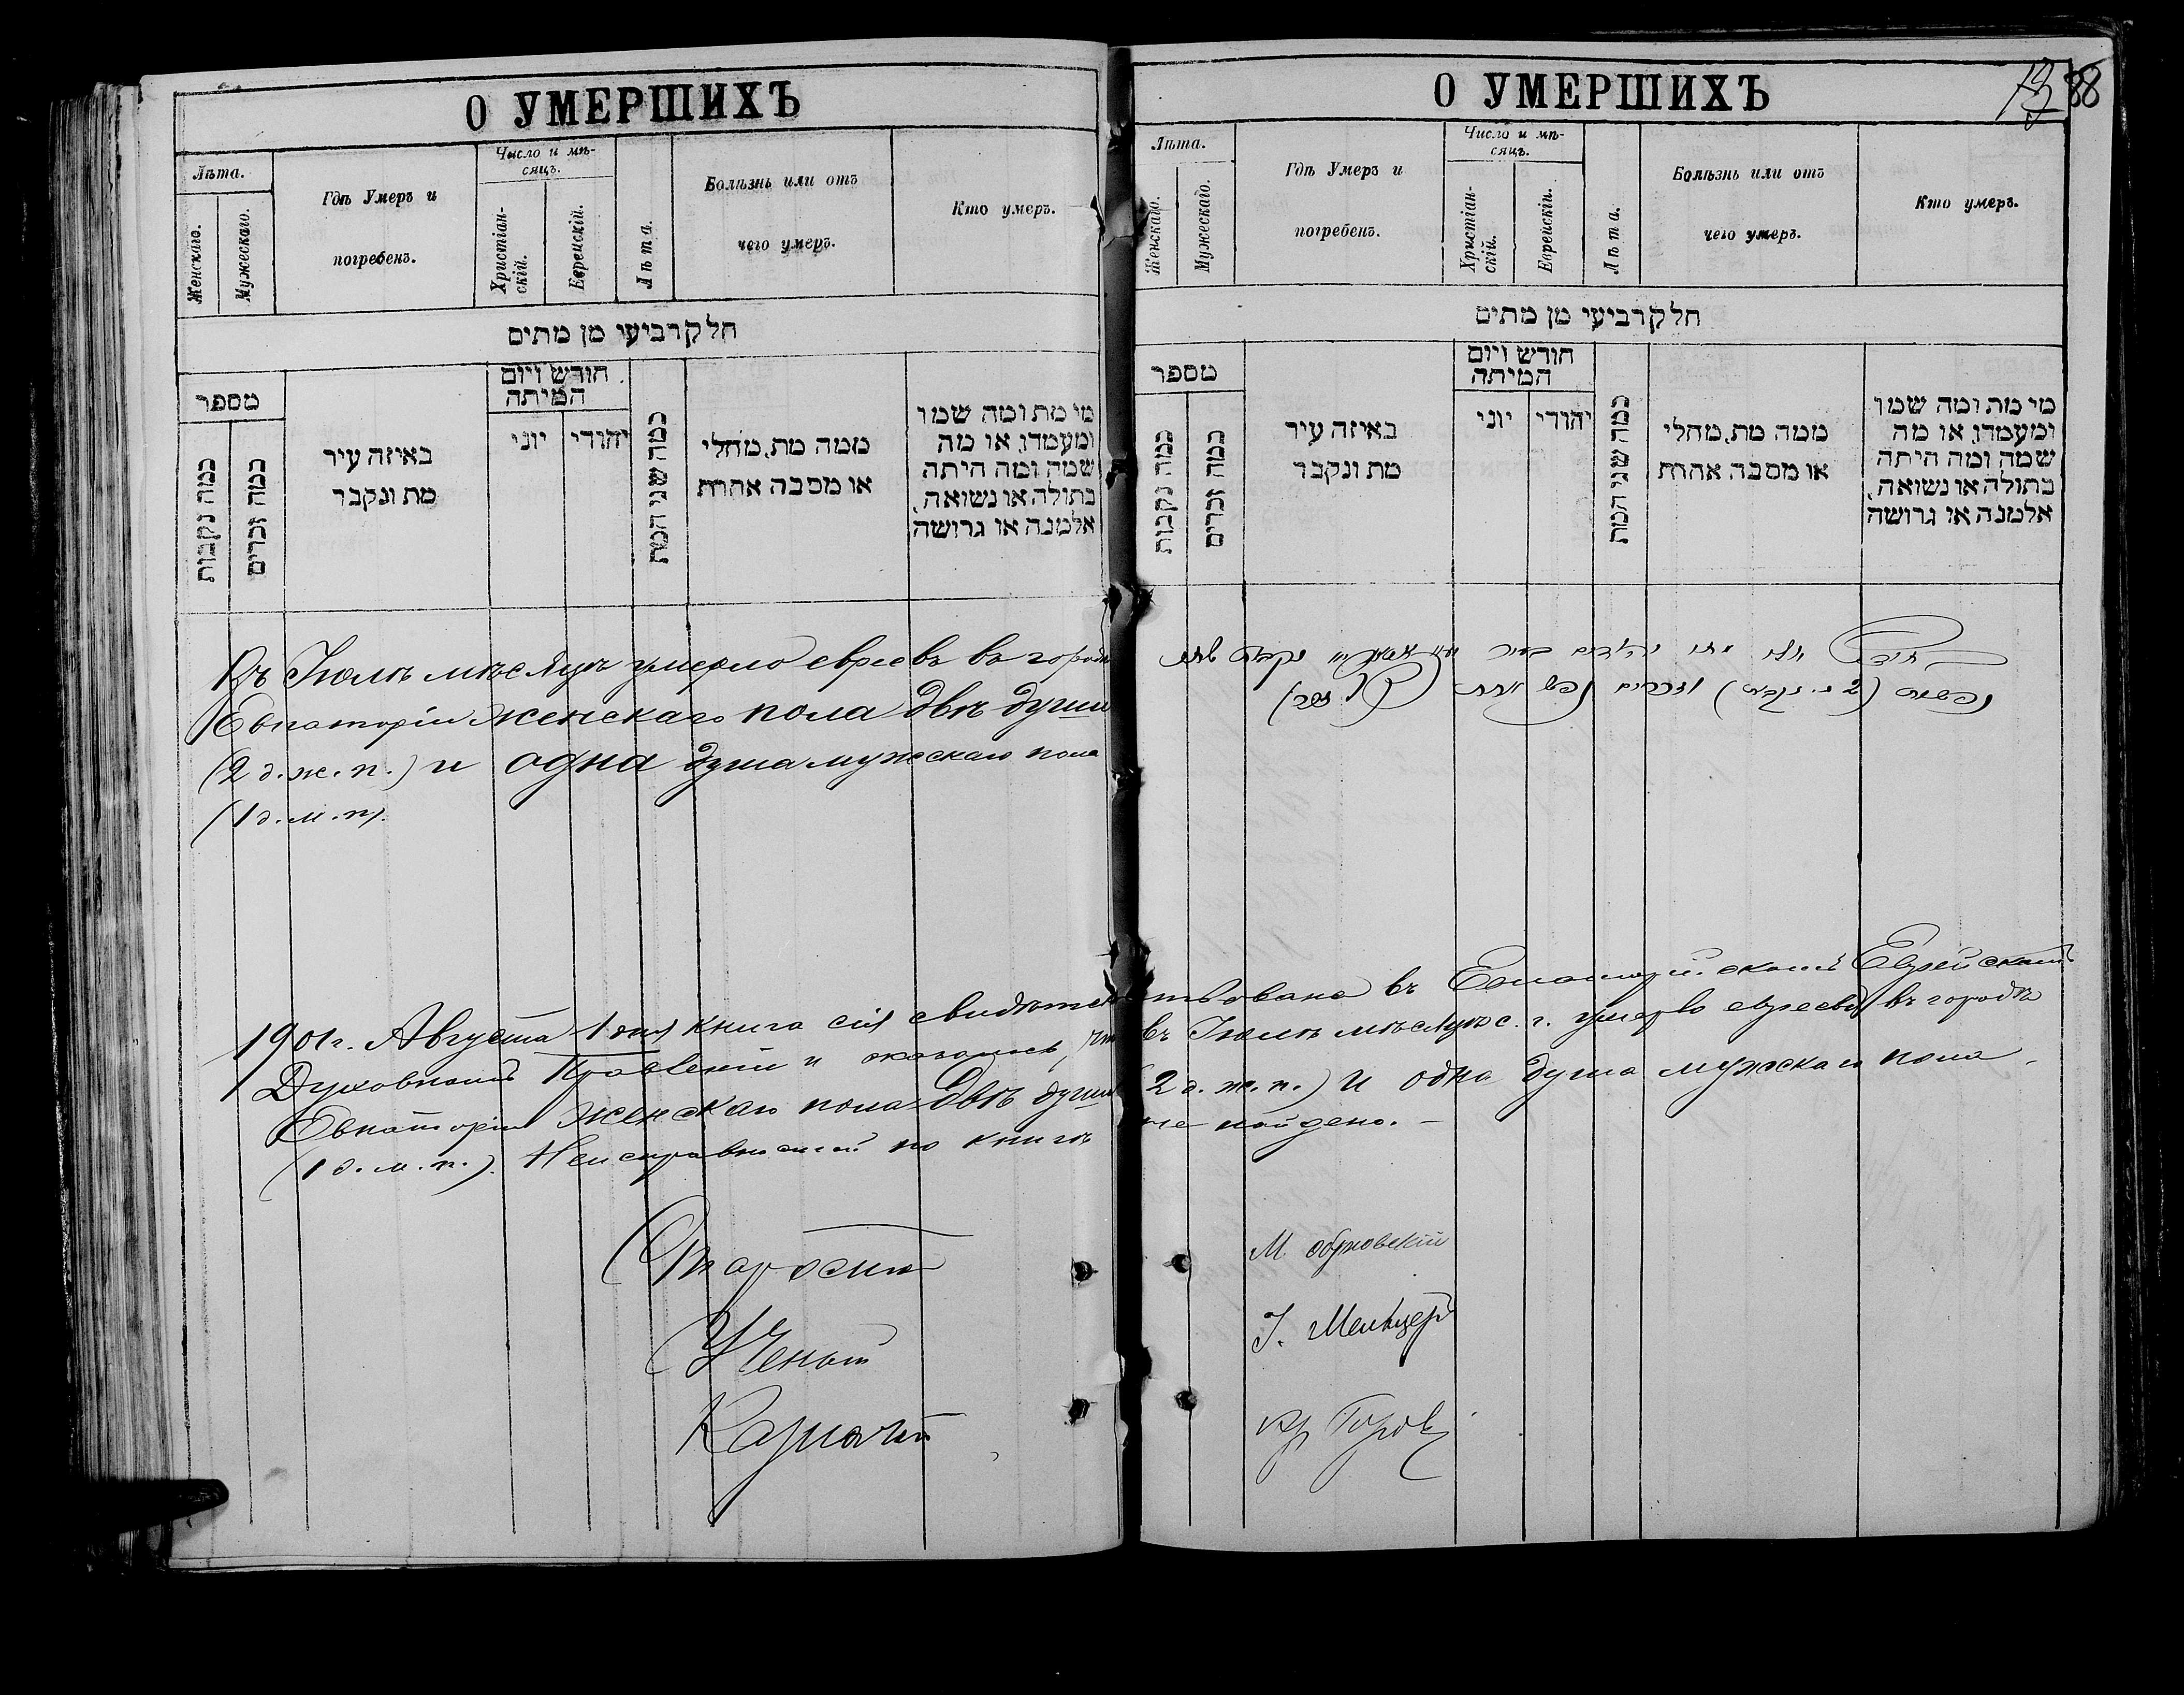 О УМЕРШИХЪ
Лѣта.
Женскаго.
Мужескаго.
Гдѣ Умеръ и
погребенъ.
Число и мѣ-
сяцъ.
Христіан-
скій.
Еврейскій.
Лѣта.
Болѣзнь или отъ
чего умеръ.
Кто умеръ.
חלק רביעי מן מתים
מספר
כמה נקבות
כמה זכרים
באיזה עיר
מת ונקבר
חודש ויום
המיתה
יוני
יהודי
כמה שני המת
ממה מת, מחלי
או מסבה אחרת
מי מת ומה שמו
ומעמדו, או מה
שמה ומה היתה
בתולה או נשואה,
אלמנה או גרושה
Въ Іюлѣ мѣсяцѣ умерло евреевъ въ городѣ
Евпаторіи женскаго пола двѣ души
(2 д. ж. п.) и одна душа мужскаго пола
(1 д. м. п.).
О УМЕРШИХЪ
88
Лѣта.
Женскаго.
Мужескаго.
Гдѣ Умеръ и
погребенъ.
Число и мѣ-
сяцъ.
Христіан-
скій.
Еврейскій.
Лѣта.
Болѣзнь или отъ
чего умеръ.
Кто умеръ.
חלק רביעי מן מתים
מספר
כמה נקבות
כמה זכרים
באיזה עיר
מת ונקבר
חודש ויום
המיתה
יוני
יהודי
כמה שני המת
ממה מת, מחלי
או מסבה אחרת
מי מת ומה שמו
ומעמדו, או מה
שמה ומה היתה
בתולה או נשואה,
אלמנה או גרושה
1901 г. Августа 1 дня книга сія свидѣтельствована въ Евпаторійскомъ Еврейскомъ
Духовномъ Правленіи и оказалось, что въ Іюлѣ мѣсяцѣ с. г. умерло евреевъ въ городѣ
Евпаторіи женскаго пола двѣ души (2 д. ж. п.) и одна душа мужскаго пола
(1 д. м. п.). Неисправностей по книгѣ не найдено.
Староста
Ученый
Казначей
М.
І. Мельцеръ